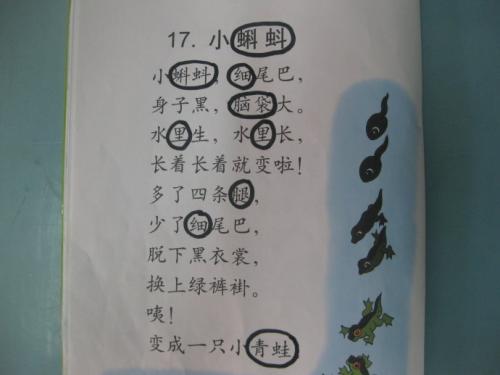 17. 小蝌蚪
小蝌蚪，细尾巴，
身子黑，脑袋大。
水里生，水里长，
长着长着就变啦！
多了四条腿，
少了细尾巴，
脱下黑衣裳，
换上绿裤褂。
咦！
变成一只小青蛙